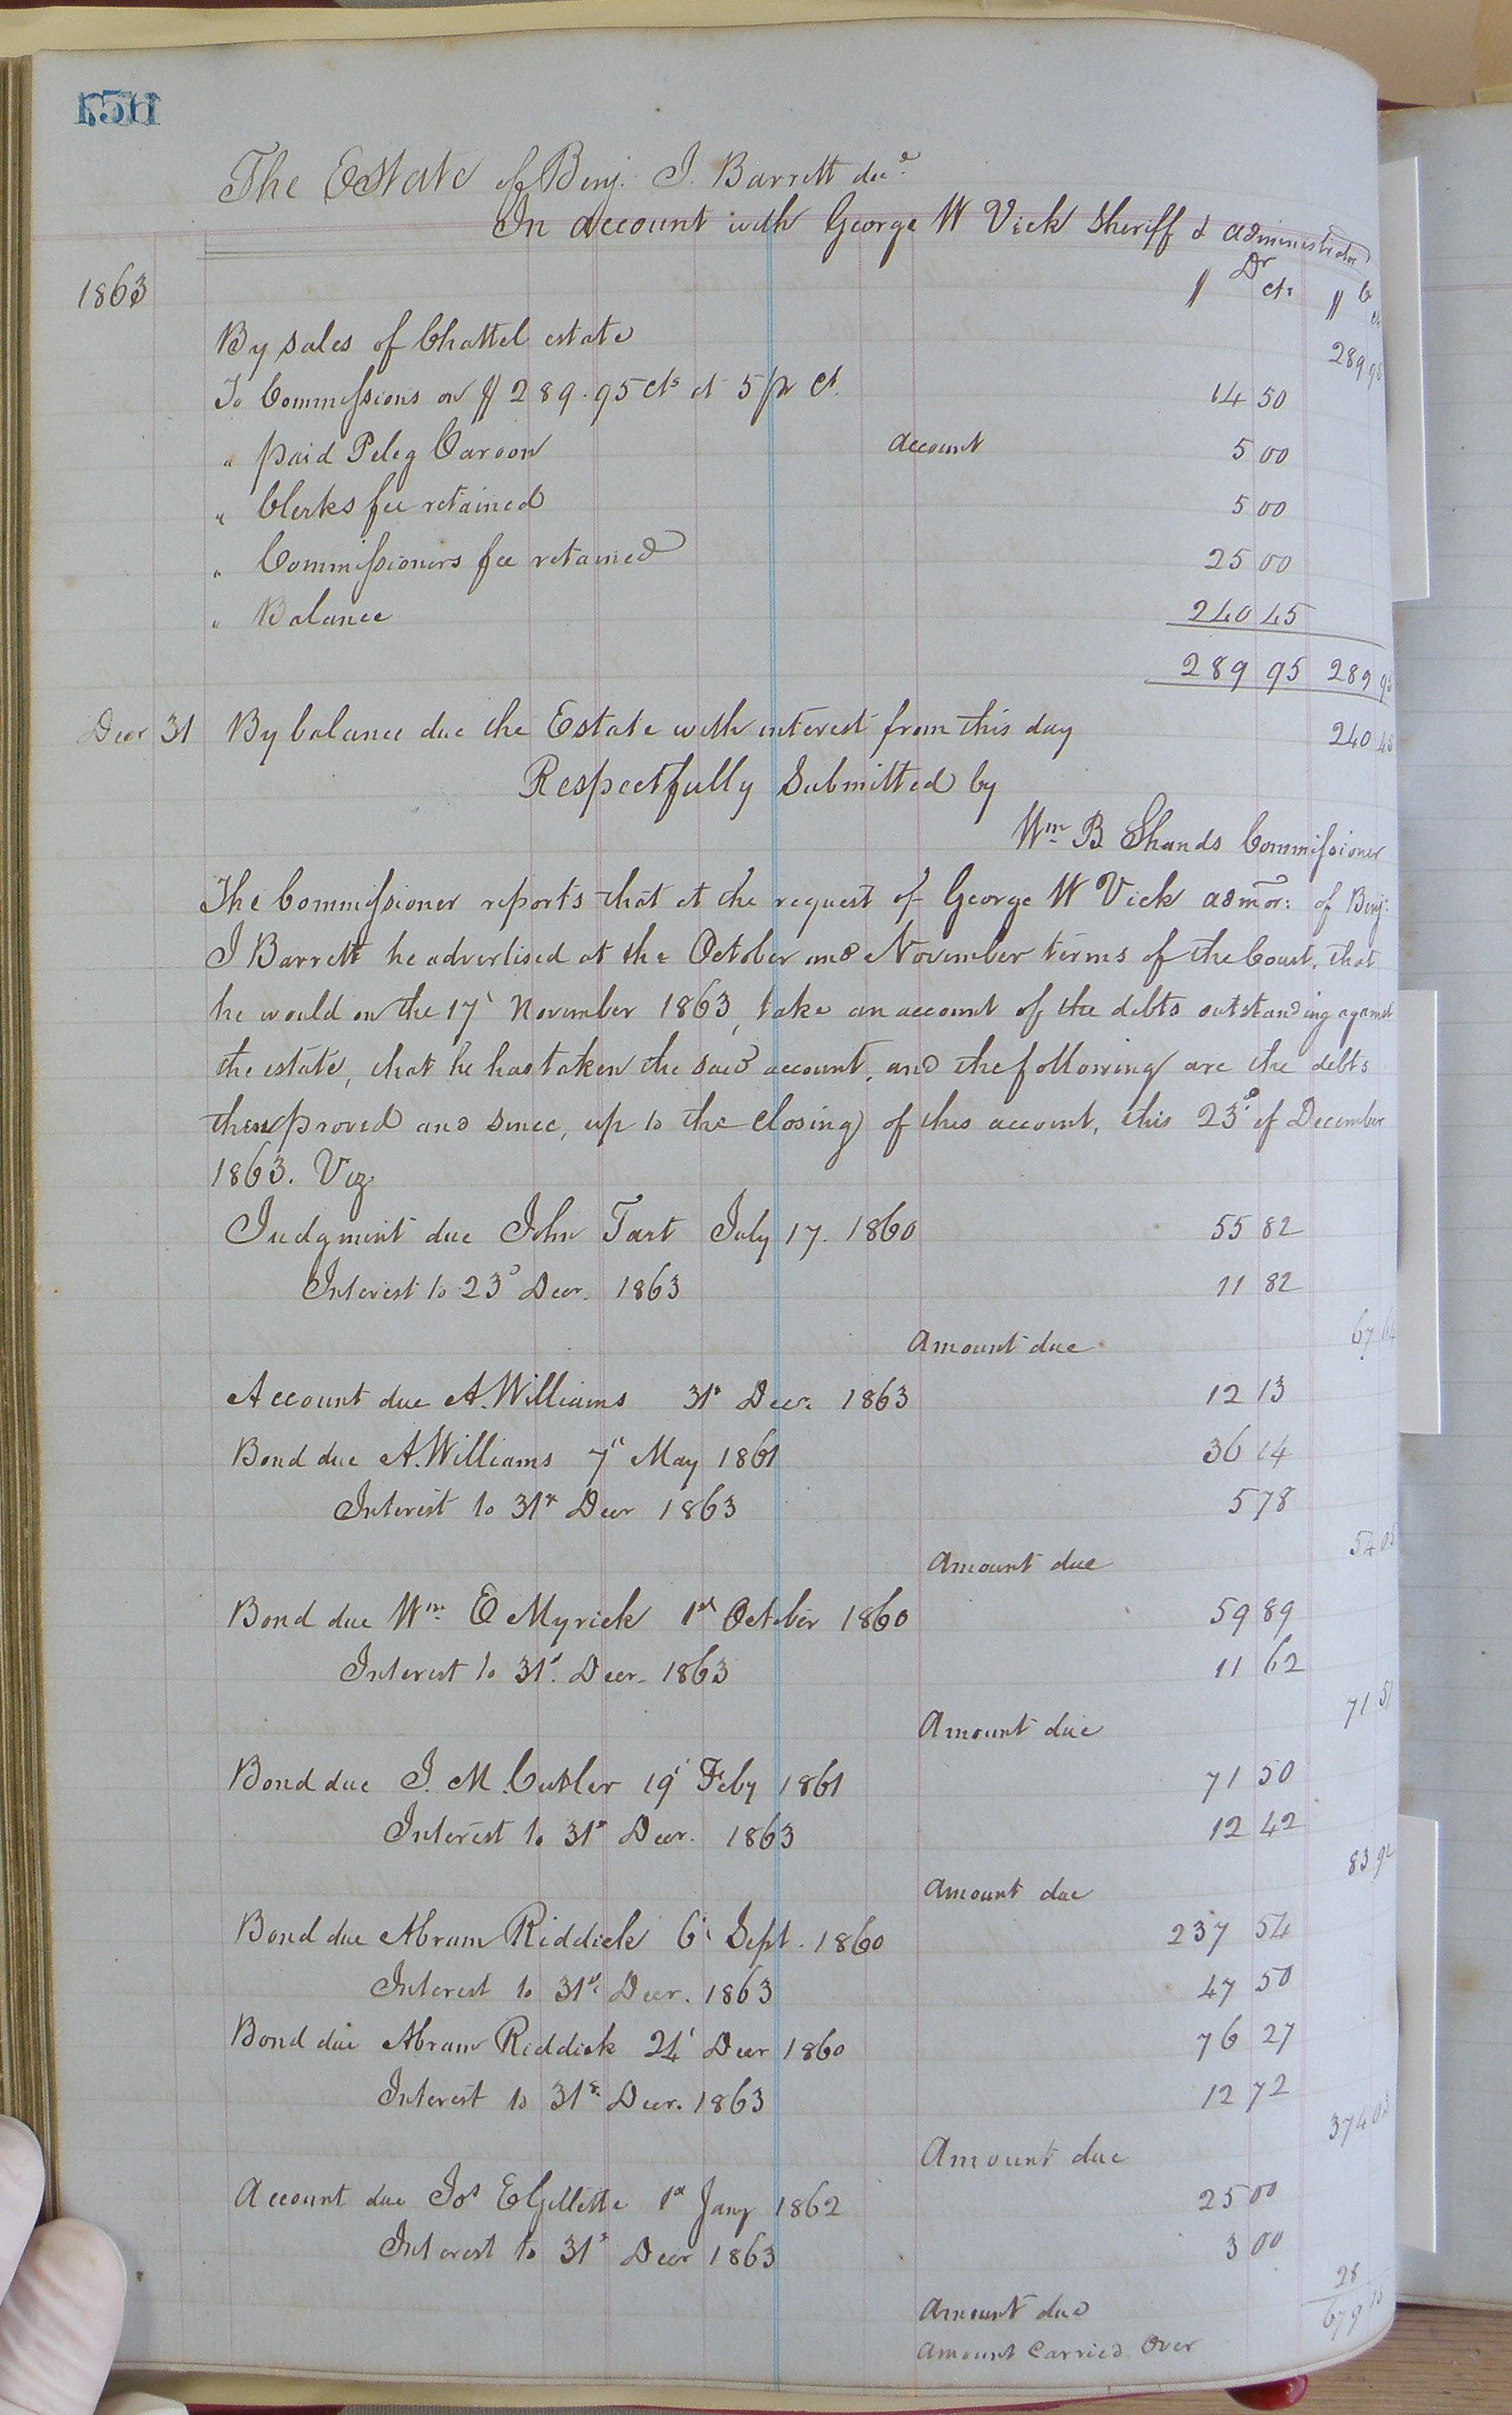 The Estate of Benj. J. Barrett decd.
In account with George W Vick Sheriff & administrator
Dr
$ cts $ cts
1863
By sales of Chattel estate 289.95
To Commissions on $289.95 cts at 5 pr ct. 14 50
" paid Peleg Caroon account 5 00
" Clerks fee retained 5 00
" Commissioners fee retained 25 00
" Balance 240 45
289 95 289 95
Decr 31 By balance due the Estate with interest from this day 240 45
Respectfully Submitted by
Wm. B Shands Commissioner
The Commissioner reports that at the request of George W Vick admor: of Benj:
J Barrett he advertised at the October and November terms of the Court, that
he would on the 17' November 1863, take an account of the debts outstanding against
the estate, that he has taken the said account, and the following are the debts
then proved and since, up to the closing of this account, this 23d of December
1863. Viz
Judgment due John Tart July 17. 1860 55 82
Interest to 23d Decr. 1863 11 82
Amount due 67 64
Account due A. Williams 31st Decr. 1863 12 13
Bond due A. Williams 7th May 1861 36 14
Interest to 31st Decr 1863 5 78
Amount due 54 05
Bond due Wm. E Myrick 1st October 1860 59 89
Interest to 31st. Decr. 1863 11 62
Amount due 71 51
Bond due J. M. Cutler 19' Feby 1861 71 50
Interest to 31st Decr. 1863 12 42
Amount due 83 92
Bond due Abram Riddick 6' Sept. 1860 237 54
Interest to 31st Decr. 1863 47 50
Bond due Abram Riddick 24' Decr 1860 76 27
Interest to 31st Decr. 1863 12 72
Amount due 374 03
Account due Jos E Gillette 1st Jany 1862 25 00
Interest to 31st Decr 1863 3 00
Amount due 28
Amount Carried Over 679 15